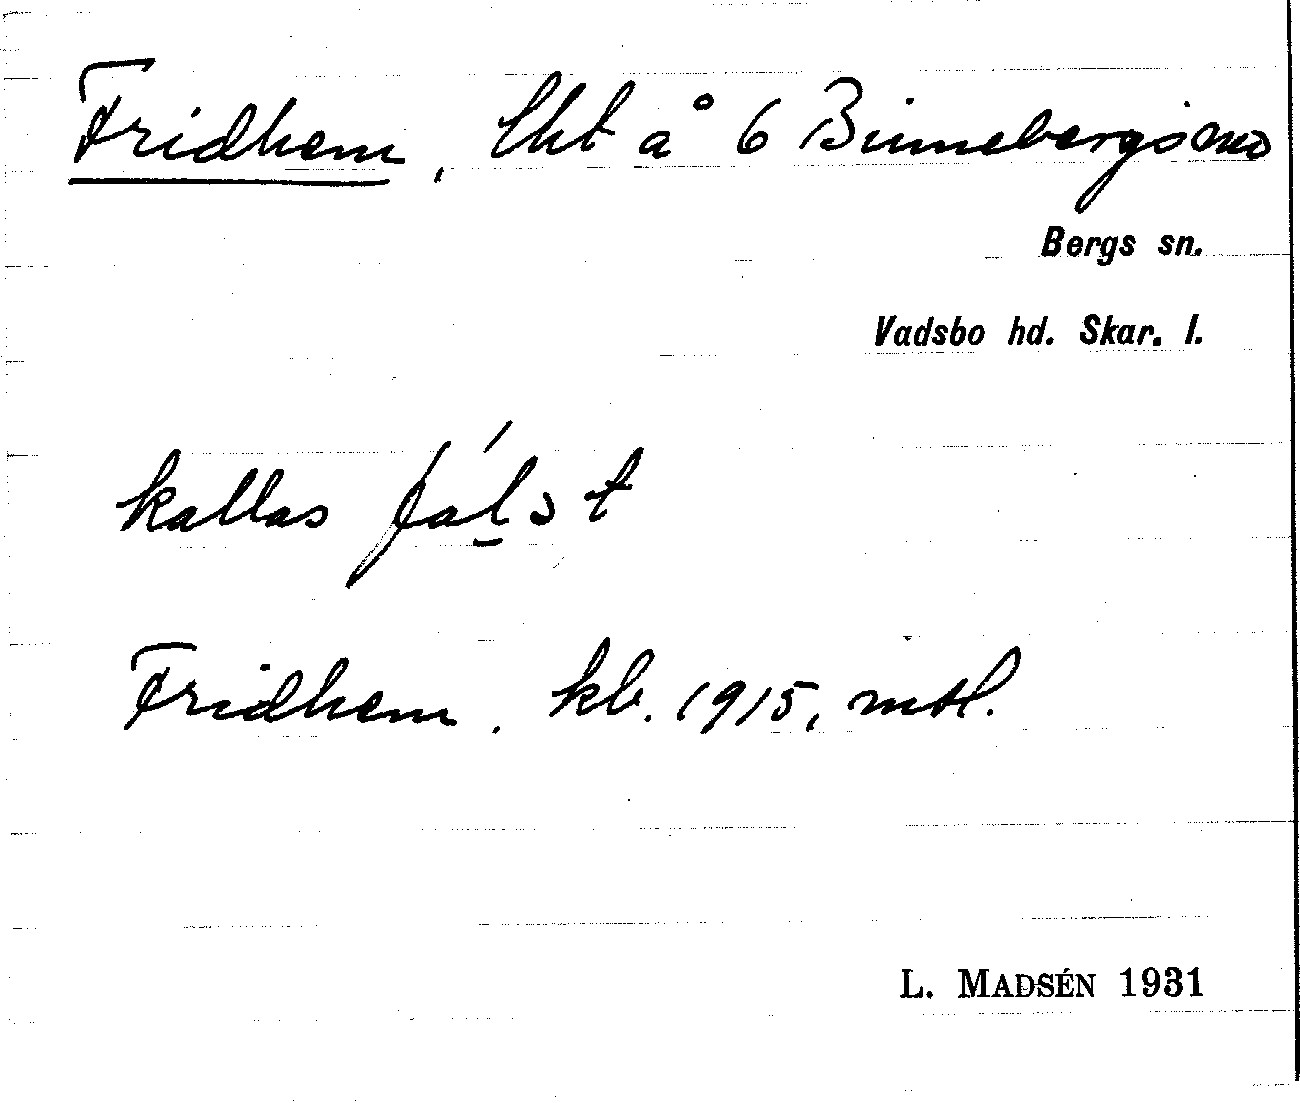 Fridhem, lht å 6 Binnebergsmo
Bergs sn.
Vadsbo hd. Skar. l.
kallas fálst
Fridhem. kb. 1915, mtl.
L. MADSÉN 1931